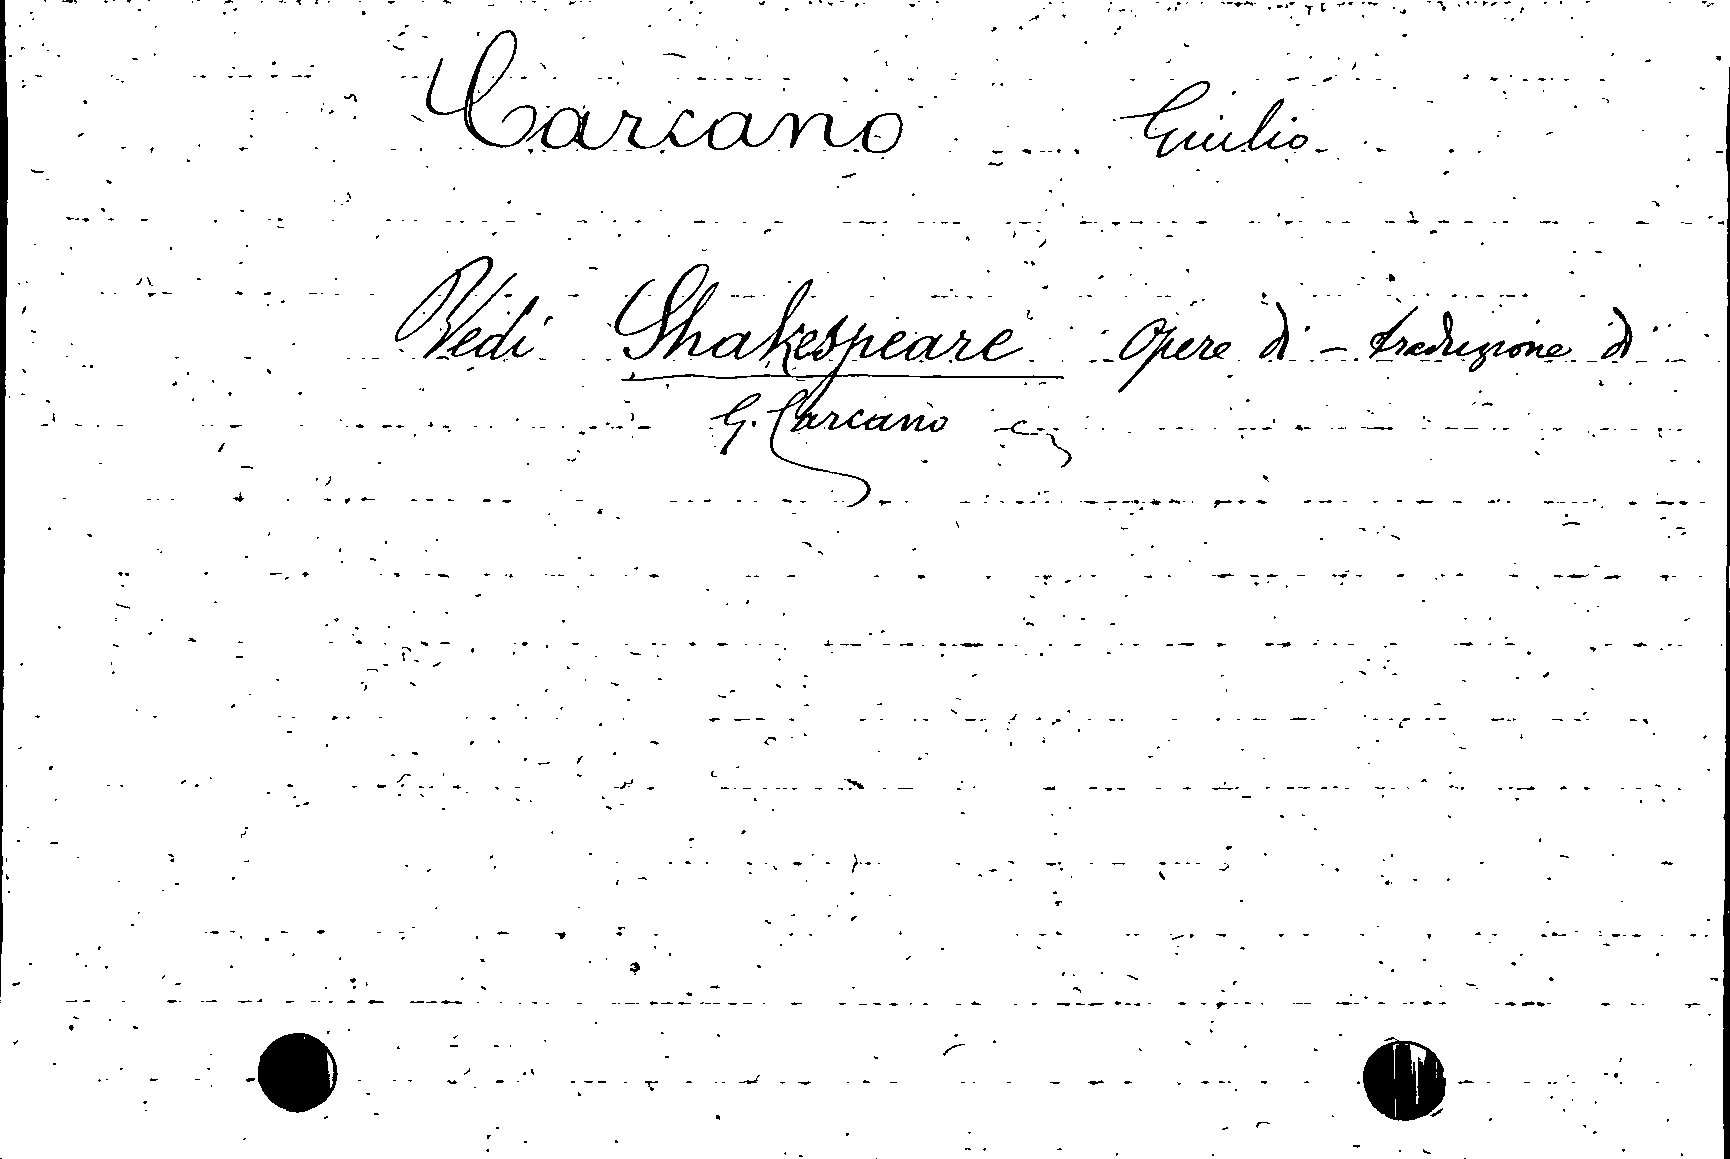 Carcano Giulio
Vedi Shakespeare Opere di - traduzione di
G. Carcano